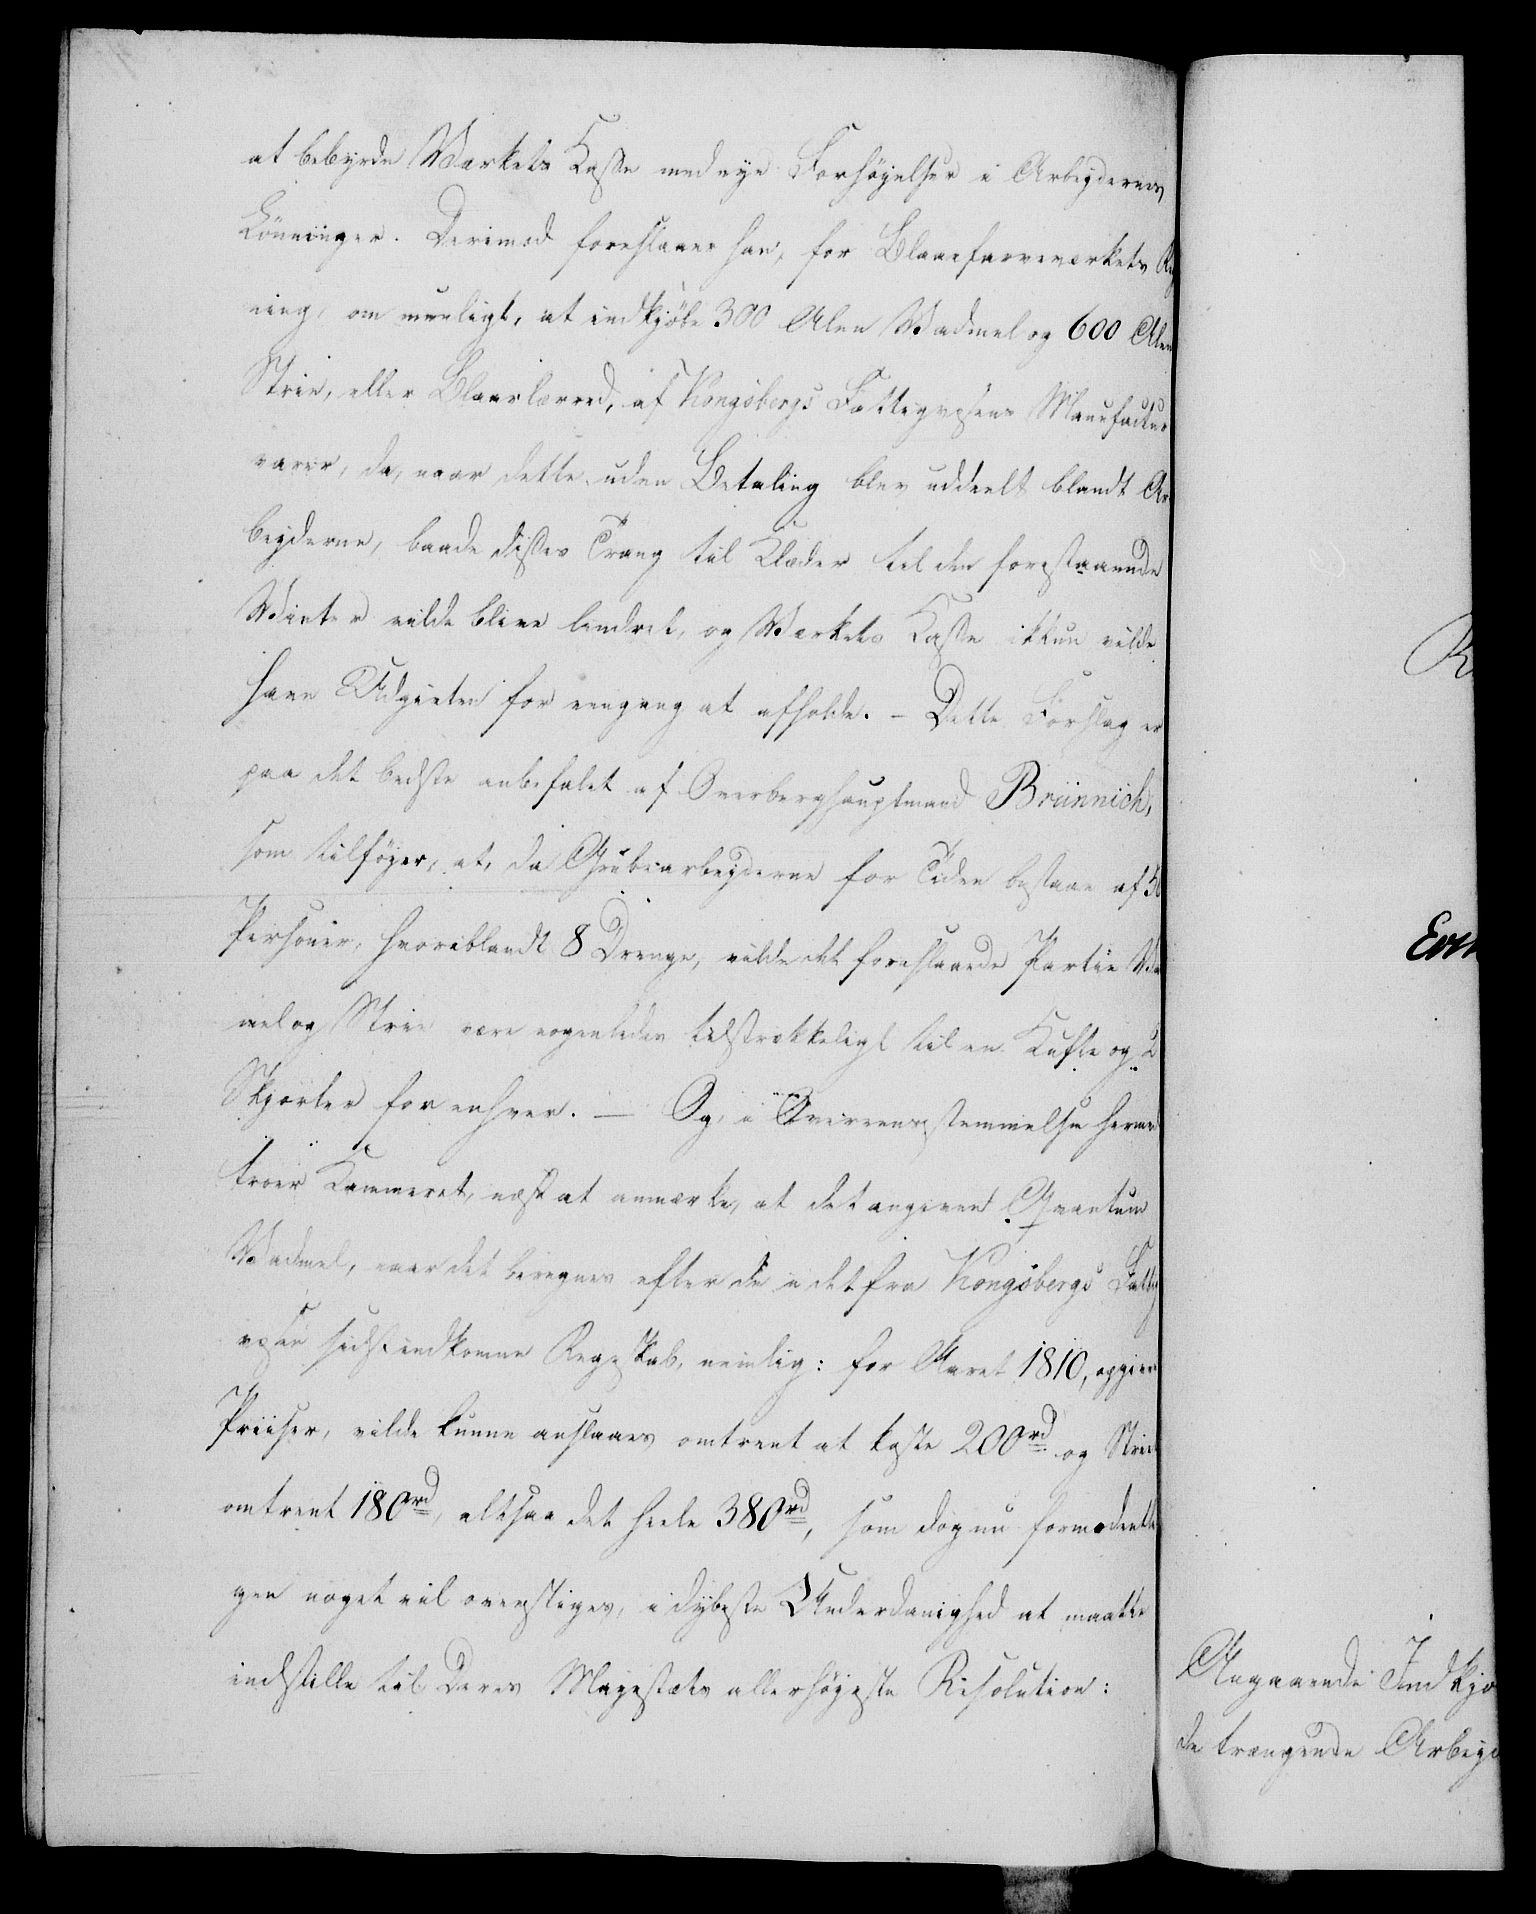 at bebyrde Værkets Kasse med nye Forhøyelser i Arbeydernes
Lønninger. Derimod foreslaaer han, for Blaaefarveværkets Reg
ning, om mueligt, at indkjøbe 300 Alen Vadmel og 600 Alen
Strie, eller Blaarlærred, af Kongsbergs Fattigvæsens Manufactur
varer, da, naar dette uden Betaling blev uddeelt blandt Ar
beyderne, baade disses Trang til Klæder til den forestaaende
Vinter vilde blive lindret, og Værkets Kasse ikkun vilde
have Udgiften for eengang at afholde. – Dette Forslag er
paa det bedste anbefalet af Overberghauptmand Brünnich,
som tilføyer, at, da Grubearbeyderne for Tiden bestaae af 50
Personer, hvoriblandt 8 Drenge, vilde det foreslaaede Partie Va
mel og Strie være nogenledes tilstrækkeligt til en Kufte og 2
Skjorter for enhver. — Og, i Overeensstemmelse herme
troer Kammeret, næst at anmærke, at det angivne Qvantum
Vadmel, naar det beregnes efter de i det fra Kongsbergs Fattig
væsen sidst indkomne Regnskab, nemlig: for Aaret 1810, opgivne
Priiser, vilde kunne anslaaes omtrent at koste 200 rd og Strie
omtrent 180 rd, altsaa det heele 380 rd, som dog nu formodentli
gen noget vil overstiges, i dybeste Underdanighed at maatte
indstille til Deres Majestæts allerhøyeste Resolution:
Angaaende Indkjø
de trængende Arbeyd